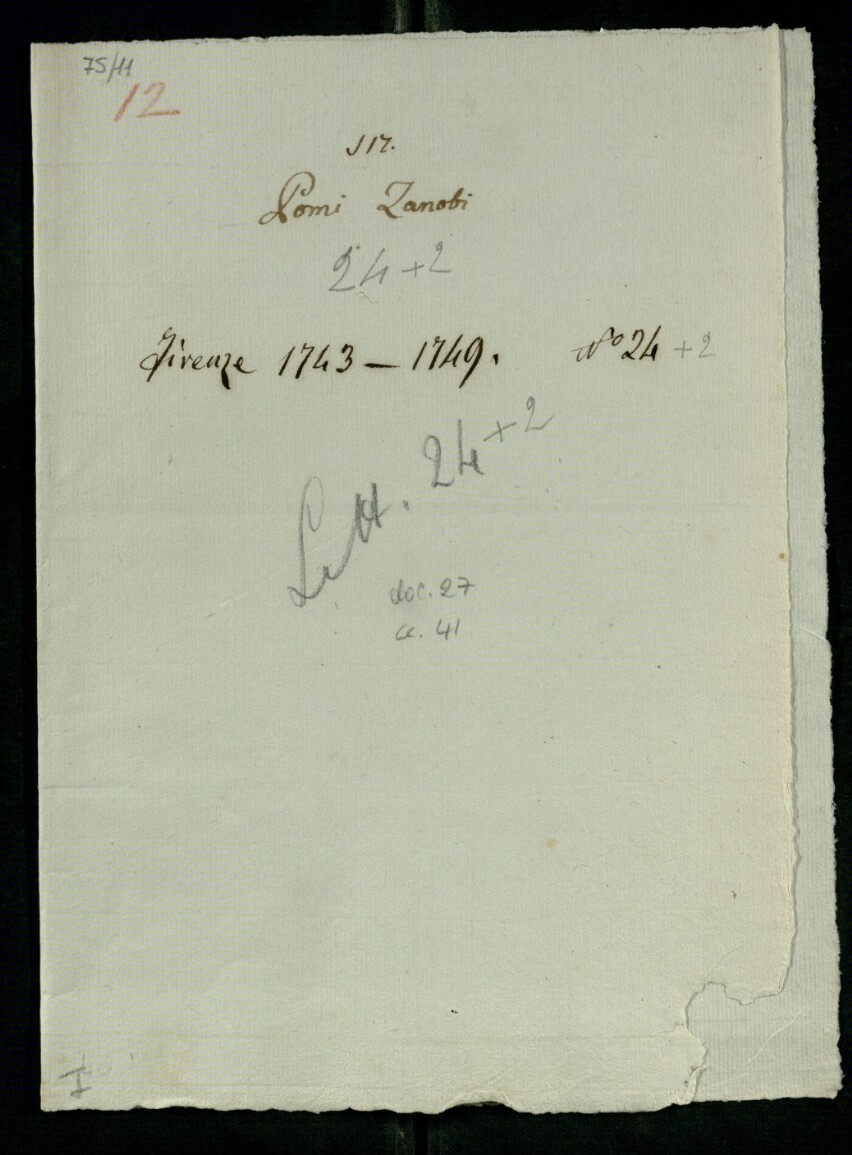 75/11
12
117.
Pomi Zanobi
24 + 2
Firenze 1743 — 1749. N° 24 + 2
Lett. 24 + 2
doc. 27
cc. 41
I